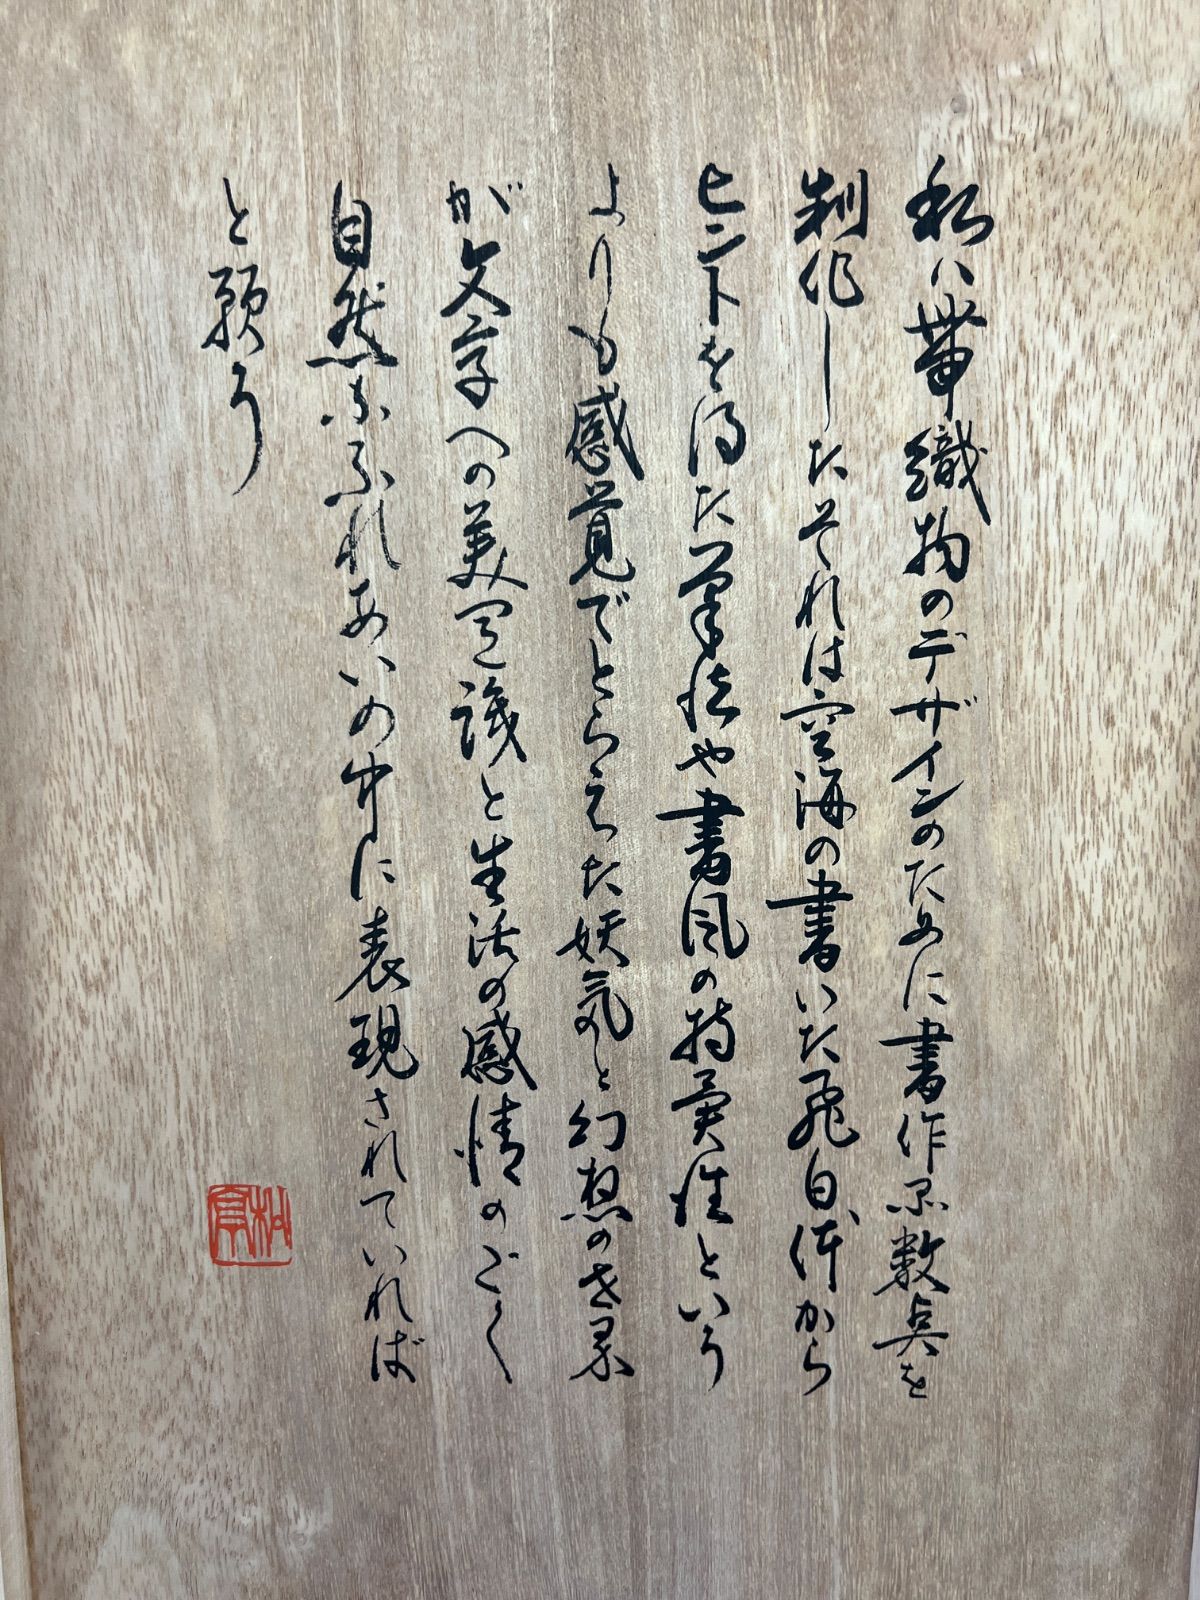 私は帯織物のデザインのために書作品数点を
制作したそれは空海の書いた飛白体から
ヒントを得た筆法や書風の特異性という
よりも感覚でとらえた妖気と幻想の世界
が文字への美意識と生活の感情のごく
自然なふれあいの中に表現されていれば
と願う